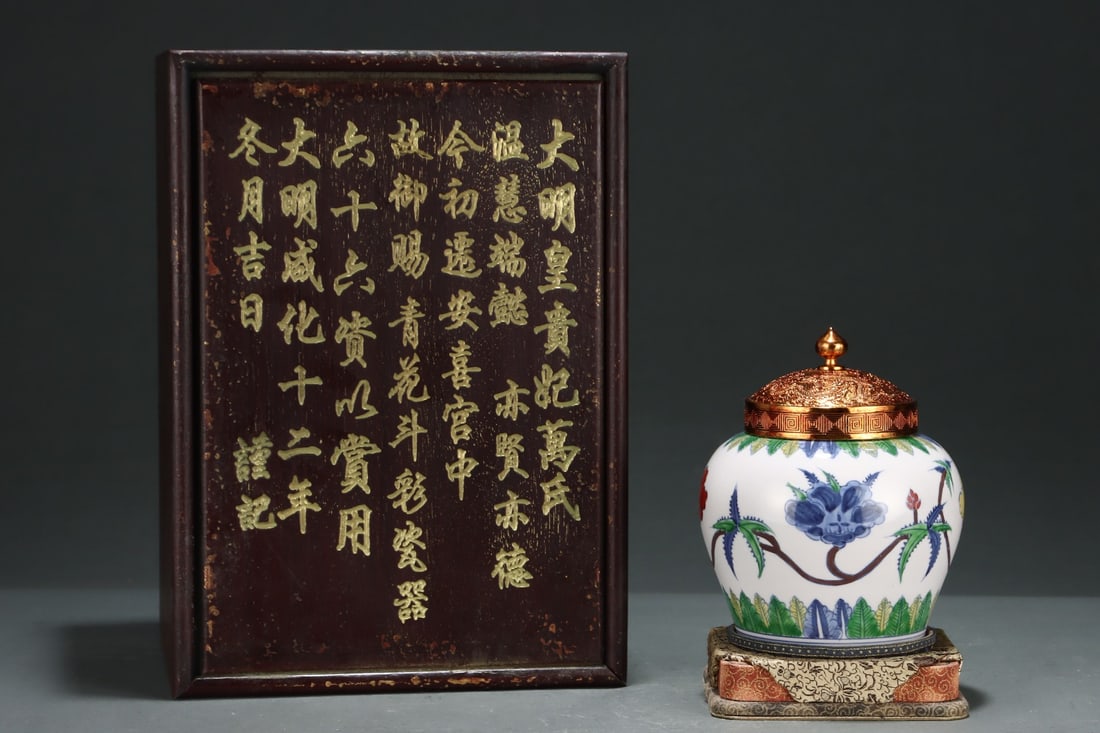 大明皇貴妃萬氏
溫慧端懿 亦賢亦德
今初遷安喜宮中
故御賜 青花斗彩瓷器
六十六賚以賞用
大明成化十二年
冬月吉日 謹記